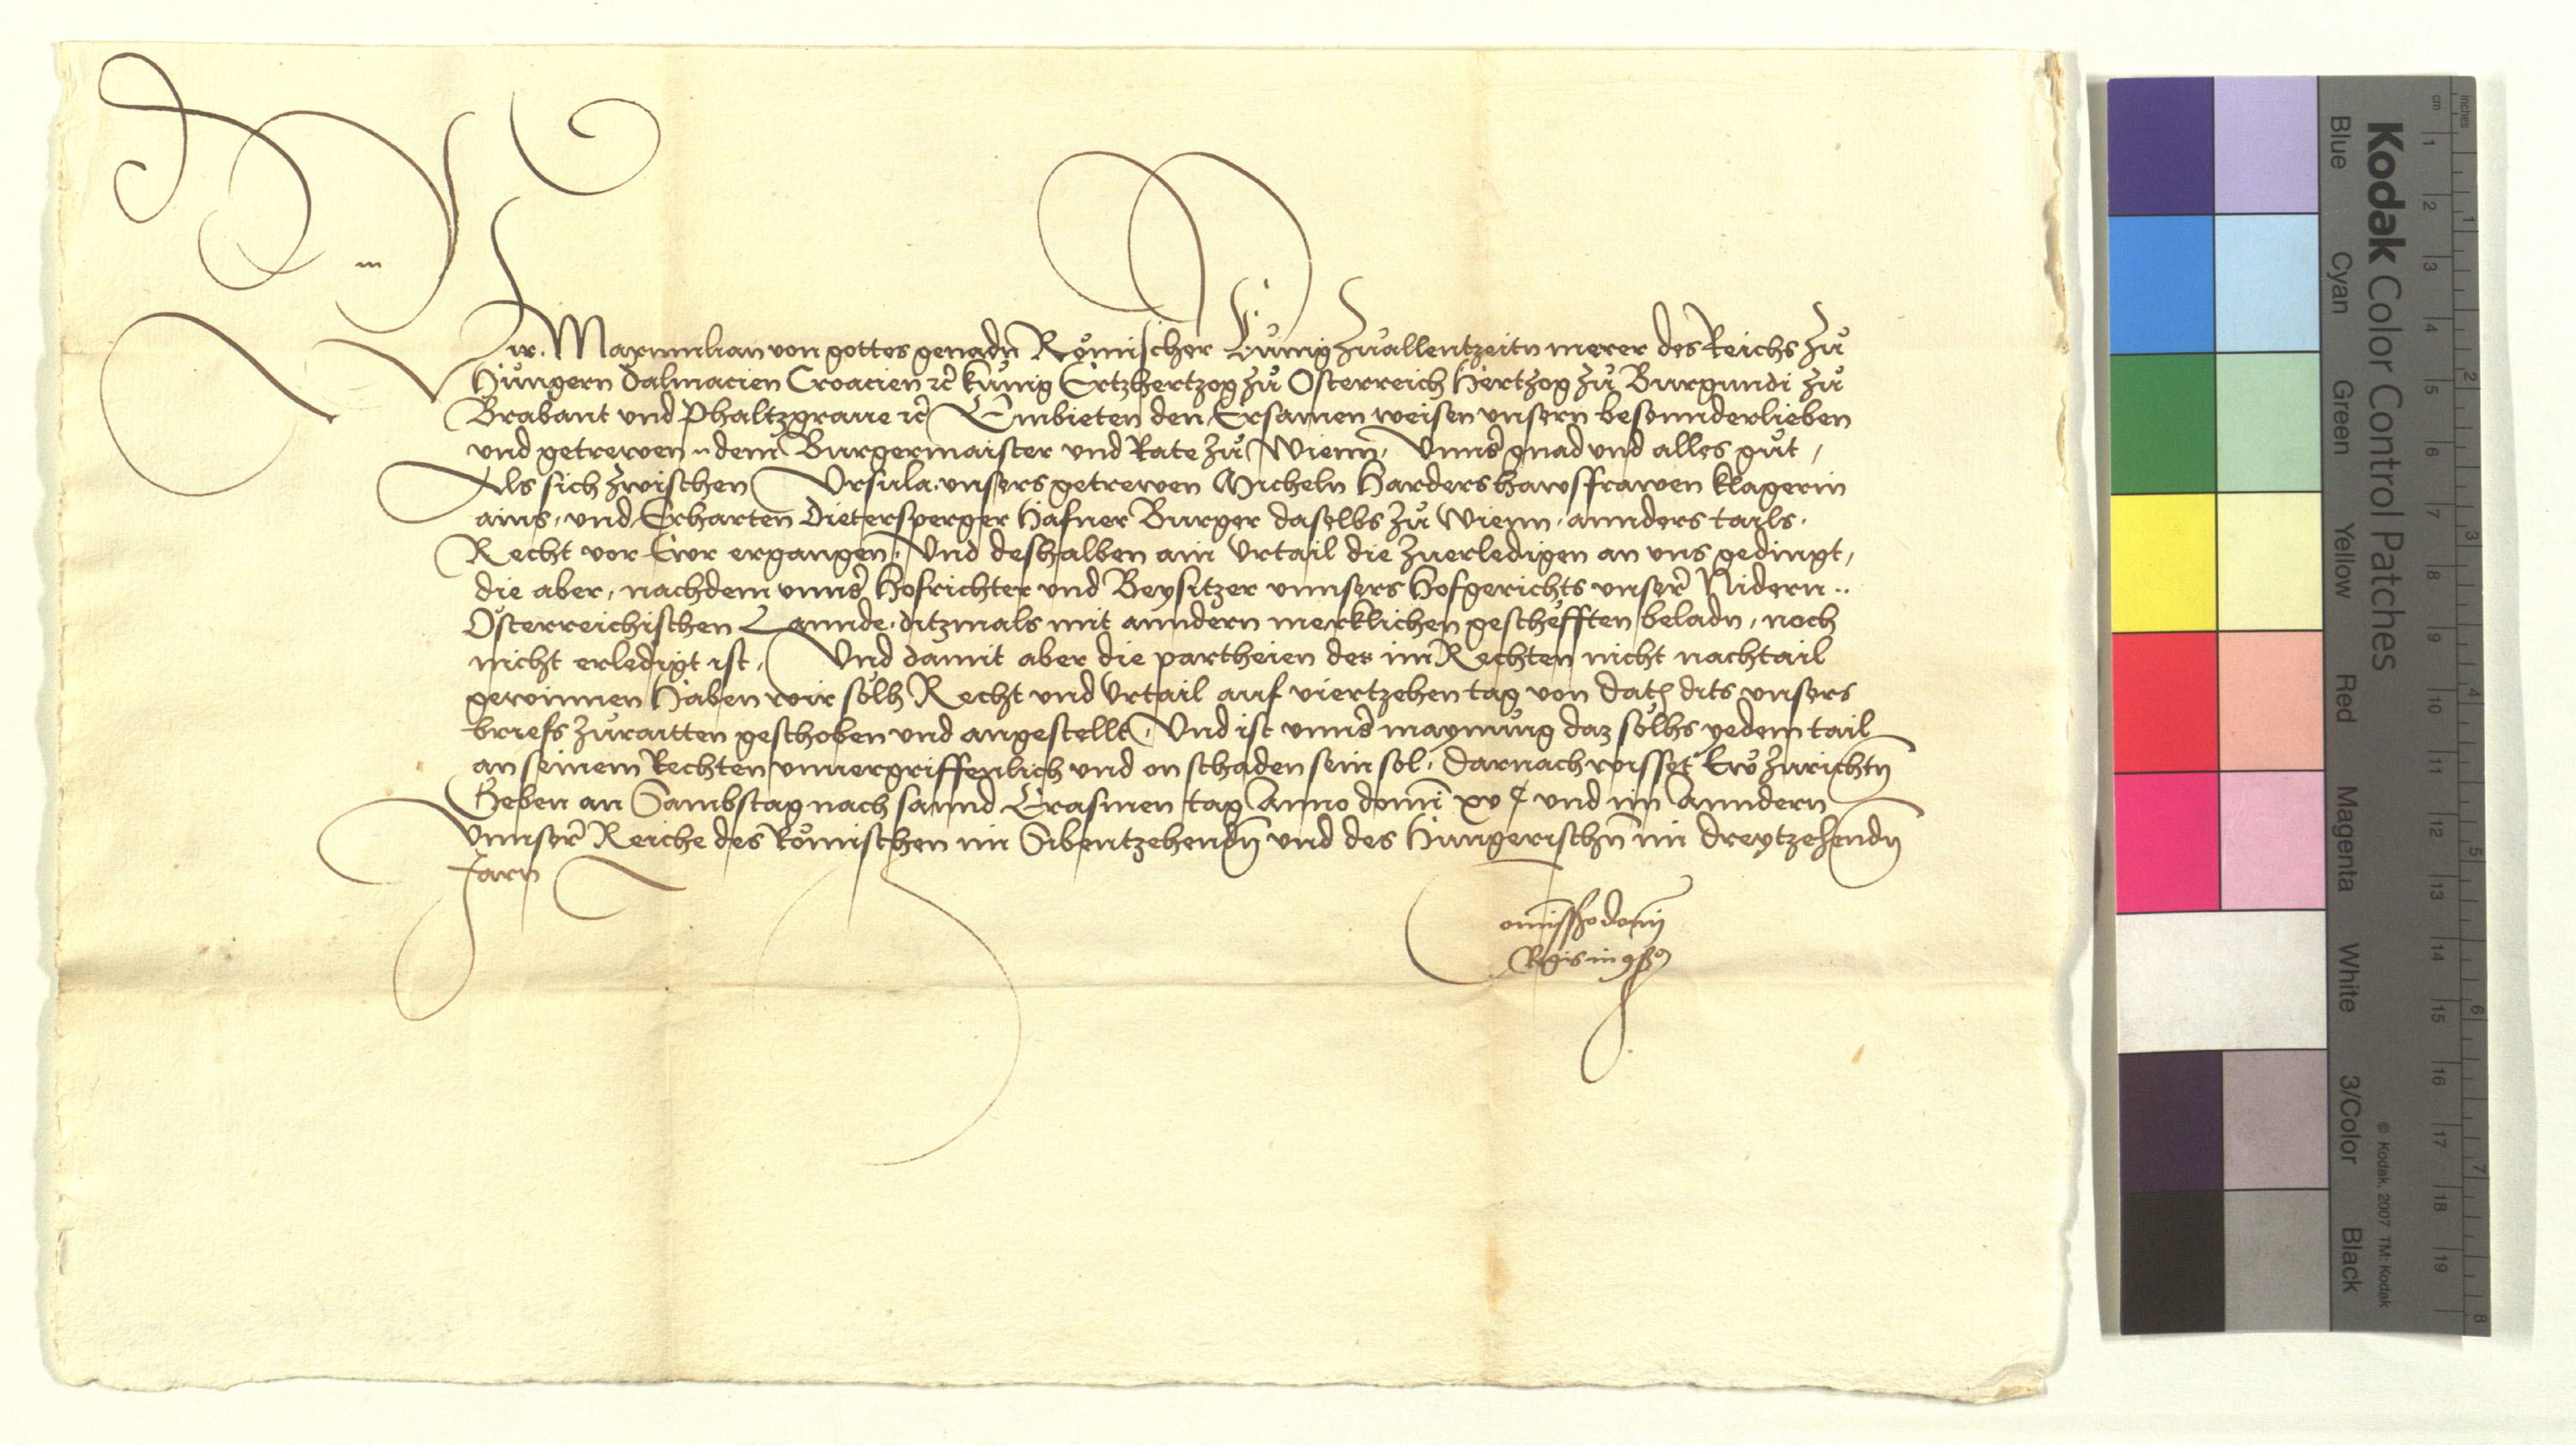 Wir Maximilian von gottes genadn Römischer Kunig zuallentzeitn merer des Reichs zu
Hungern Dalmacien Croacien ꝛc̃ kunig Ertzhertzog zu Osterreich Hertzog zu Burgundi zu
Brabant und Phaltzgraue ꝛc̃ Embieten den Ersamen weisen unsern besonnderlieben
und getrewen .. dem Burgermaister und Rate zu Wienn, Unnser gnad und alles gut,
Als sich zwischen Ursula, unsers getrewen Micheln Harders hawsfrawen klagerin
ains, und Erharten Dietersperger Hafner Burger daselbs zu Wienn, annders tails,
Recht vor Ewr ergangen, Und deshalben ain Urtail die zuerledigen an uns gedingt,
die aber, nachdem unnser Hofrichter und Beysitzer unnsers Hofgerichts unserer Nidern ..
Osterreichischen Lannde, ditzmals mit anndern mercklichen geschefften beladn, noch
nicht erledigt ist, Und damit aber die partheien des im Rechten nicht nachtail
gewinnen Haben wir solh Recht und Urtail auf viertzehen tag von dato dits unsers
briefs zuraitten geschoben und angestellt, Und ist unnser maynung daz solhs yedem tail
an seinem Rechten unuergriffenlich und on schaden sein sol, Darnach wisset Ew zurichtn
Geben an Sambstag nach sannd Erasmen tag Anno domi xv c und im Anndern
Unnserer Reiche des Römischen im Sibentzehendn und des Hungerischn im dreytzehendn
Jarn
Comissio domi
Regis in cons
Kodak Color Control Patches
Blue Cyan Green Yellow Red Magenta White 3/Color Black
© Kodak, 2007 TM: Kodak
inches 1 2 3 4 5 6 7 8
cm 1 2 3 4 5 6 7 8 9 10 11 12 13 14 15 16 17 18 19